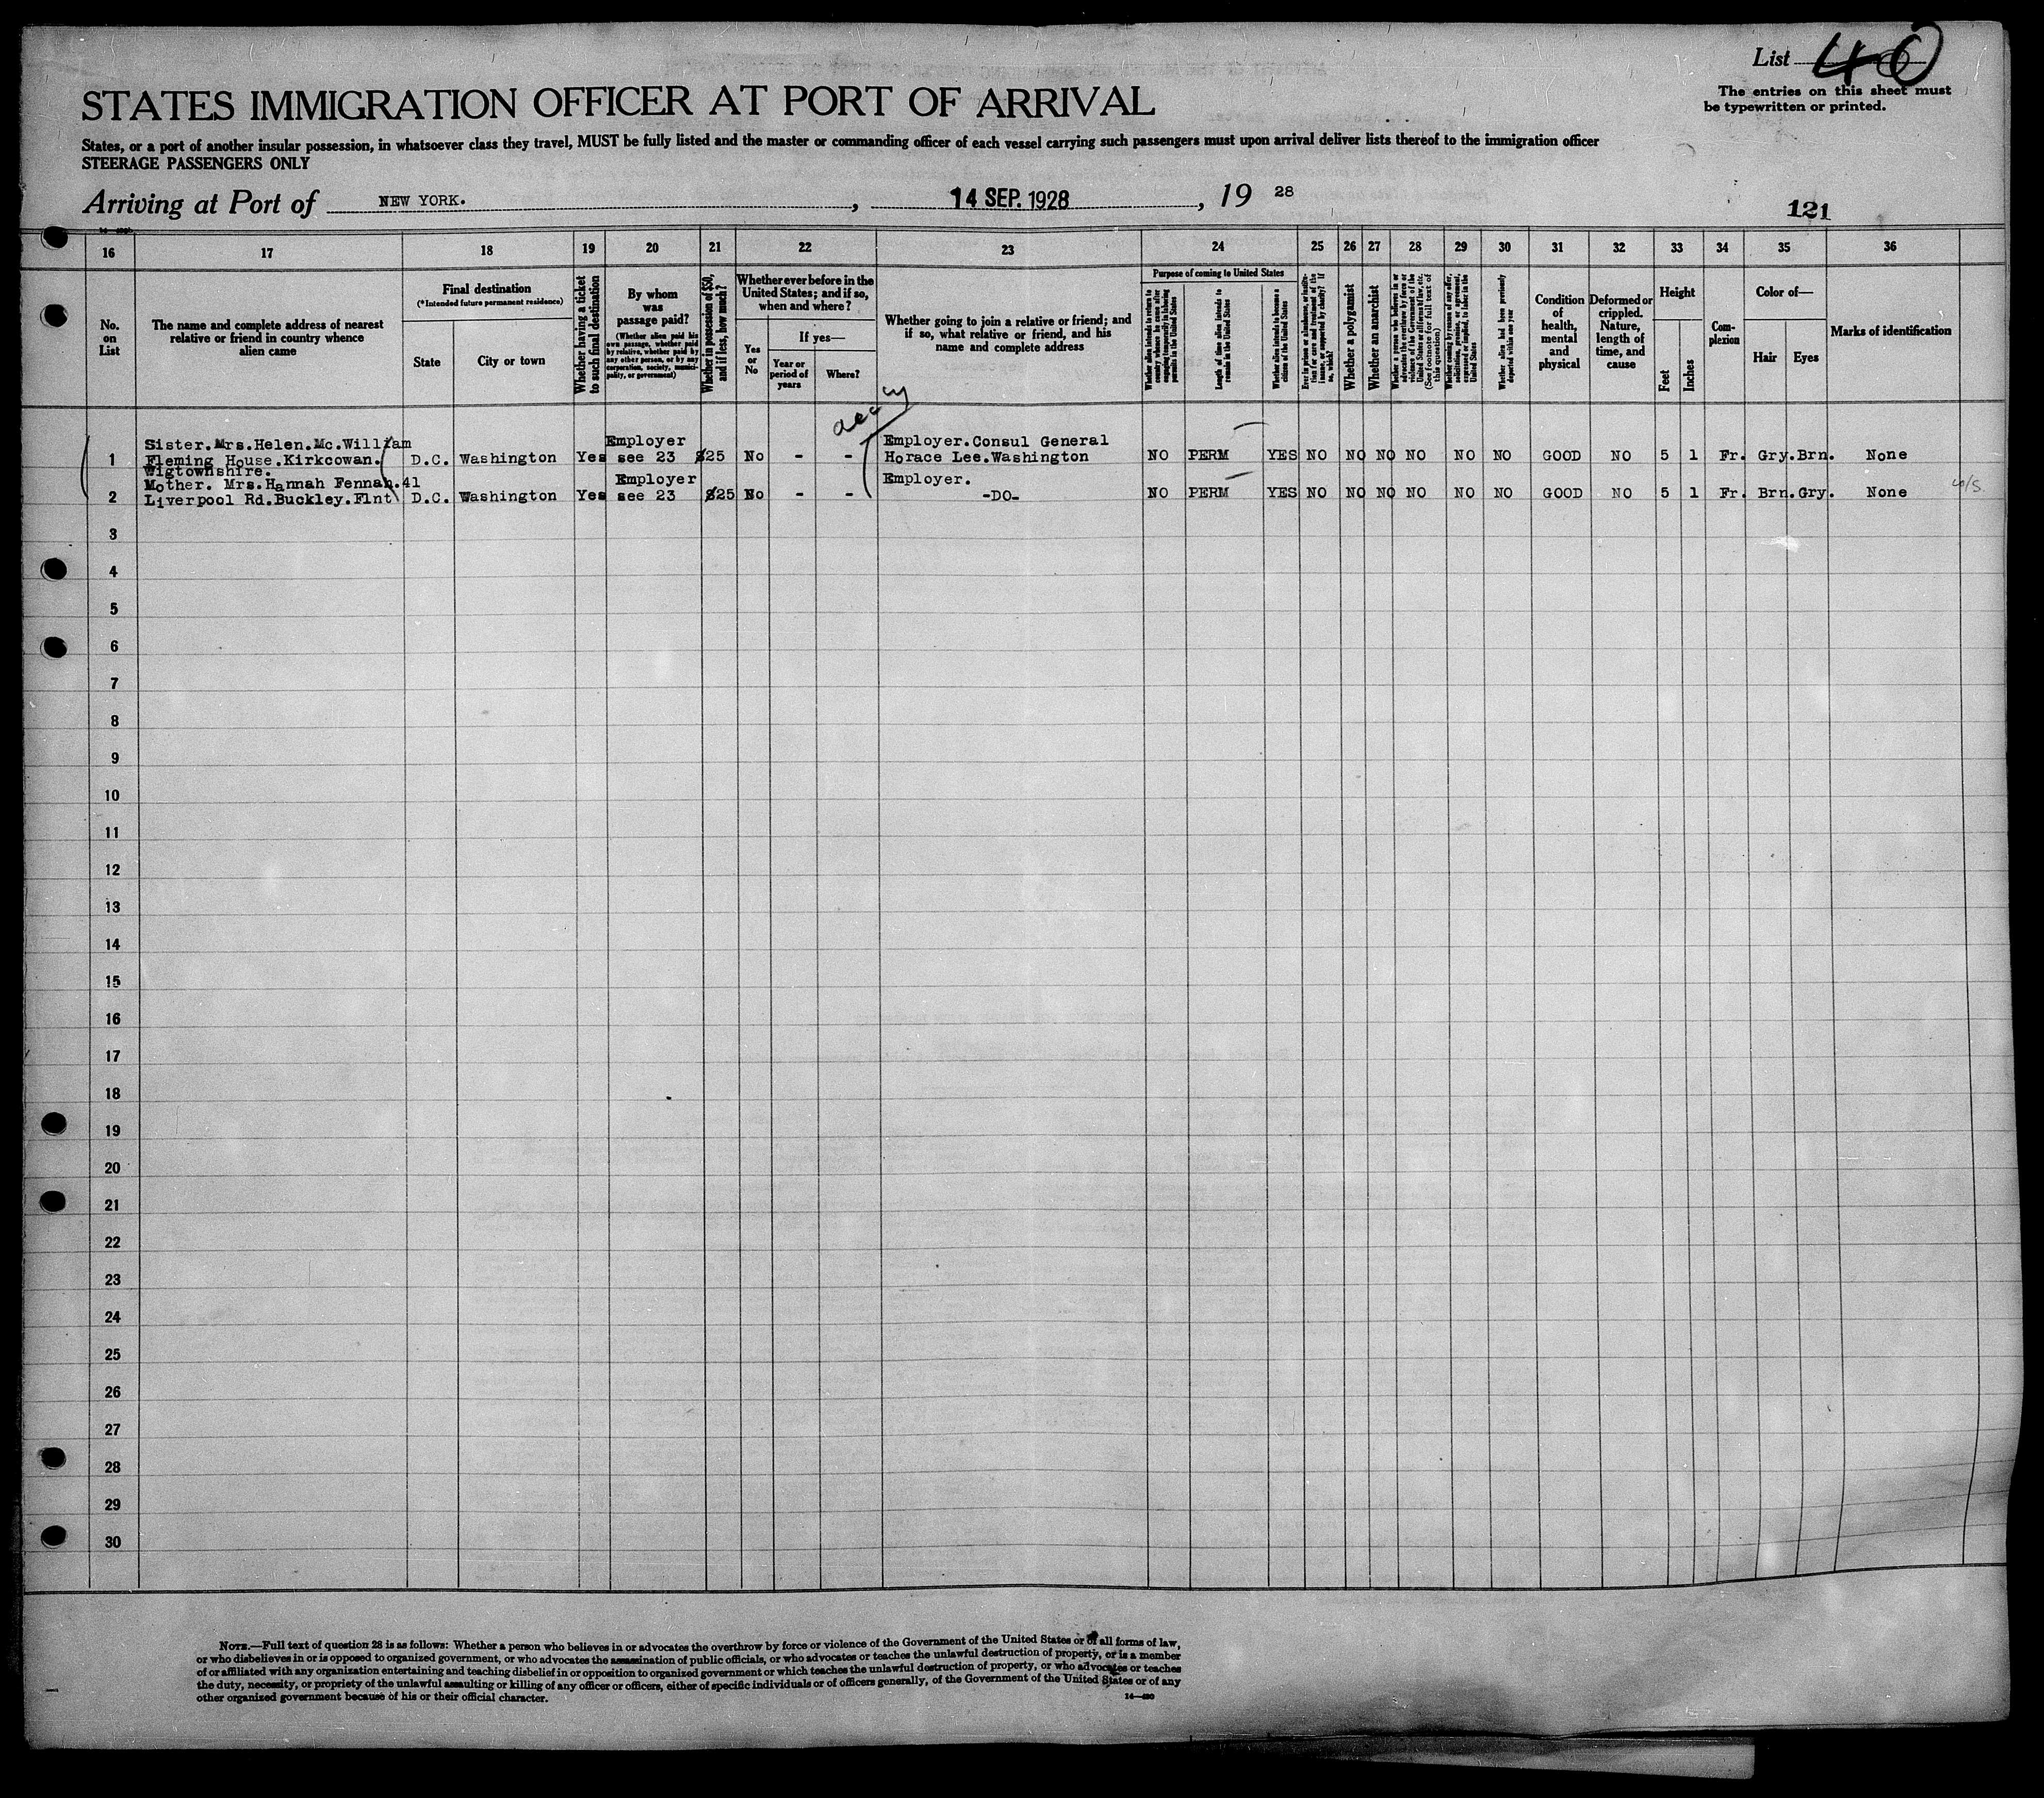 List 40
The entries on this sheet must
be typewritten or printed.
STATES IMMIGRATION OFFICER AT PORT OF ARRIVAL
States, or a port of another insular possession, in whatsoever class they travel, MUST be fully listed and the master or commanding officer of each vessel carrying such passengers must upon arrival deliver lists thereof to the immigration officer
STEERAGE PASSENGERS ONLY
Arriving at Port of NEW YORK. , 14 SEP. 1928 , 19 28
121
16 17 18 19 20 21 22 23 24 25 26 27 28 29 30 31 32 33 34 35 36
No.
on
List
The name and complete address of nearest
relative or friend in country whence
alien came
Final destination
(*Intended future permanent residence)
State
City or town
Whether having a ticket
to such final destination
By whom
was
passage paid?
(Whether alien paid his
own passage, whether paid
by relative, whether paid by
any other person, or by any
corporation, society, munici-
pality, or government)
Whether in possession of $50,
and if less, how much?
Whether ever before in the
United States; and if so,
when and where?
Yes
or
No
If yes—
Year or
period of
years
Where?
Whether going to join a relative or friend; and
if so, what relative or friend, and his
name and complete address
Purpose of coming to United States
Whether alien intends to return to
country whence he came after
engaging temporarily in laboring
pursuits in the United States
Length of time alien intends to
remain in the United States
Whether alien intends to become a
citizen of the United States
Ever in prison or almshouse, or institu-
tion for care and treatment of the
insane, or supported by charity? If
so, which?
Whether a polygamist
Whether an anarchist
Whether a person who believes in or
advocates the overthrow by force or
violence of the Government of the
United States or all forms of law, etc.
(See footnote for full text of
this question)
Whether coming by reason of any offer,
solicitation, promise, or agreement,
expressed or implied, to labor in the
United States
Whether alien had been previously
deported within one year
Condition
of
health,
mental
and
physical
Deformed or
crippled.
Nature,
length of
time, and
cause
Height
Feet
Inches
Com-
plexion
Color of—
Hair
Eyes
Marks of identification
Sister.Mrs.Helen.Mc.William Employer Employer.Consul General
1 Fleming House.Kirkcowan. D.C. Washington Yes see 23 $25 No - - Horace Lee.Washington NO PERM YES NO NO NO NO NO NO GOOD NO 5 1 Fr. Gry. Brn. None
Wigtownshire.
Mother. Mrs.Hannah Fennah.41 Employer Employer.
2 Liverpool Rd.Buckley.Flnt D.C. Washington Yes see 23 $25 No - - -DO- NO PERM YES NO NO NO NO NO NO GOOD NO 5 1 Fr. Brn. Gry. None
3
4
5
6
7
8
9
10
11
12
13
14
15
16
17
18
19
20
21
22
23
24
25
26
27
28
29
30
NOTE.—Full text of question 28 is as follows: Whether a person who believes in or advocates the overthrow by force or violence of the Government of the United States or of all forms of law,
or who disbelieves in or is opposed to organized government, or who advocates the assassination of public officials, or who advocates or teaches the unlawful destruction of property, or is a member
of or affiliated with any organization entertaining and teaching disbelief in or opposition to organized government or which teaches the unlawful destruction of property, or who advocates or teaches
the duty, necessity, or propriety of the unlawful assaulting or killing of any officer or officers, either of specific individuals or of officers generally, of the Government of the United States or of any
other organized government because of his or their official character.
14—430